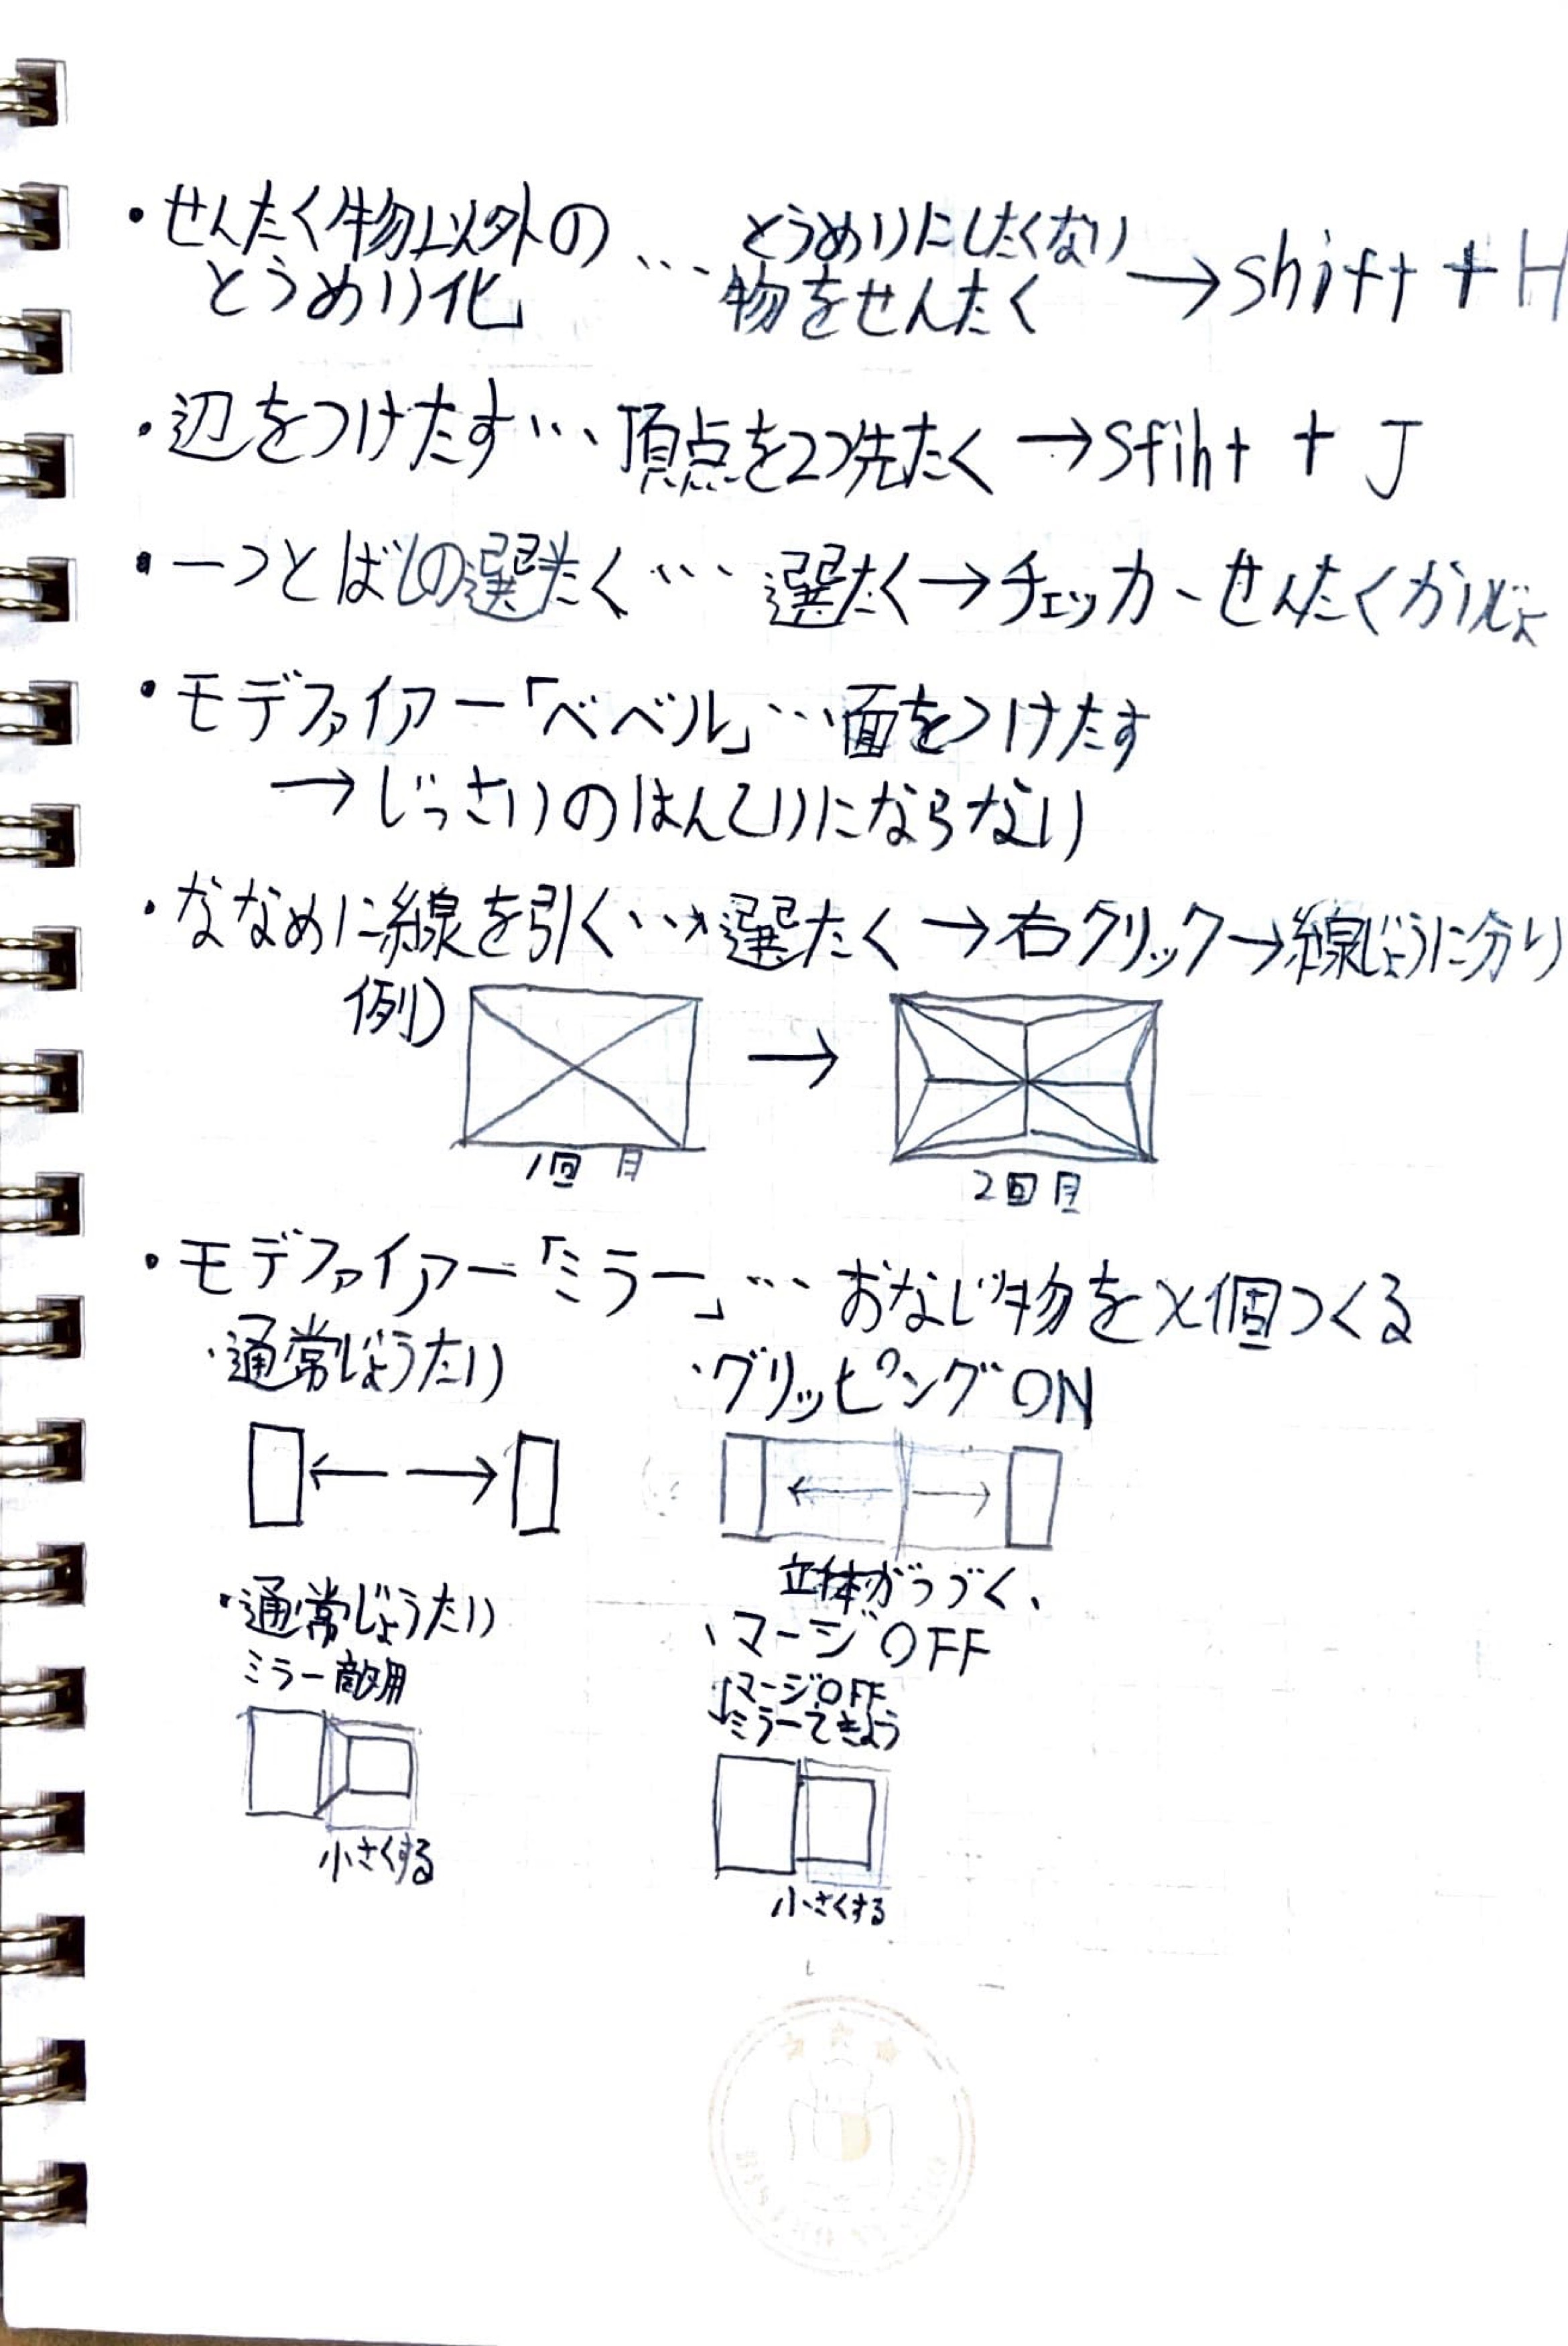 ・せんたく物以外の … とうめいにしたくない → shift + H
とうめい化 物をせんたく
・辺をつけたす… 頂点を2つ先たく → sfiht + J
・一つとばしの選たく… 選たく→チェッカーせんたくかいじょ
・モデファイアー「ベベル」…面をつけたす
→ じっさいのはんていにならない
・ななめに線を引く…選たく → 右クリック→線じょうに分り
例)
→
1回目
2回目
・モデファイアー「ミラー」… おなじ物を×個つくる
・通常じょうたい ・グリッピングON
← → ← →
立体がつづく、
・通常じょうたい ・マージOFF
ミラー
↓マージOFF
ミラーてきよう
小さくする
小さくする